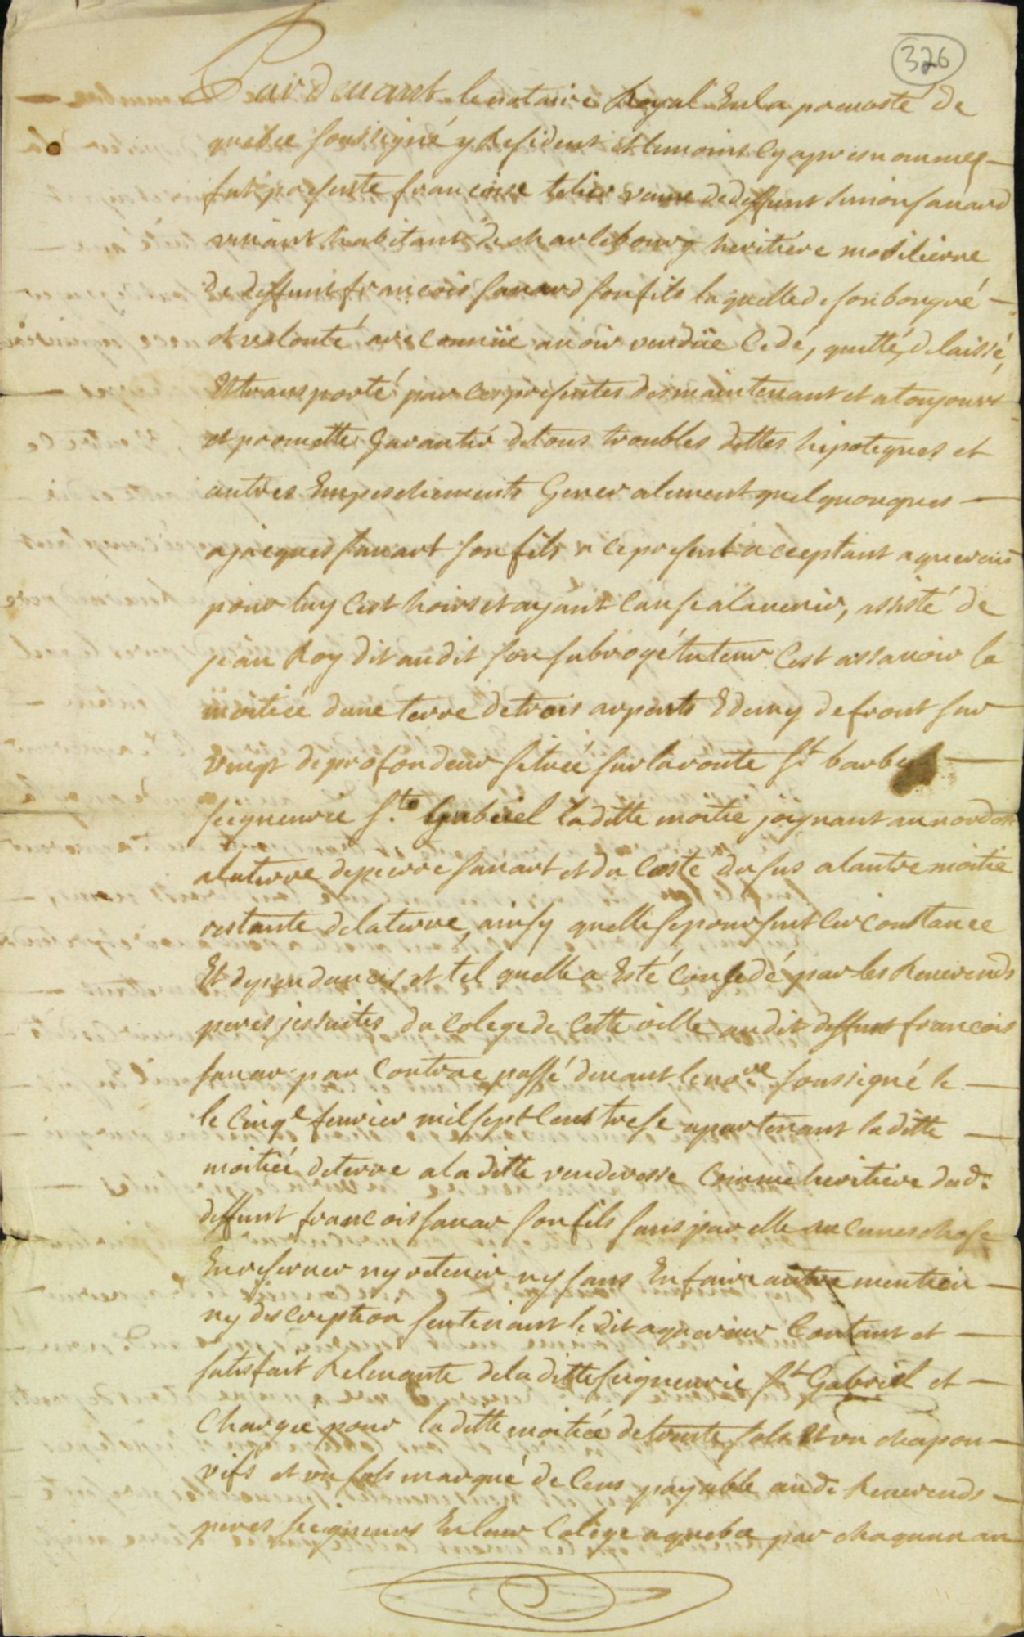 326
Par devant le notaire Royal En la prevosté de
quebec soussigné y Resident et temoins cy apres nommes
fut presente francoise vauve de deffunt simon sauard
vivant habitant de charlebourg heritiere mobiliere
de deffunt francois sauard son fils laquelle de son bon gré
et volonté a reconnüe avoir vendüe Cedé, quitté, delaissé,
Et transporté par Ces presentes des maintenant et a toujours
et promette Garantir de tous troubles dettes hipoteques et
autres Empeschements Generalement quelquonques
a jacques sauart son fils a ce present acceptant aquereur
pour luy Cest hoirs et ayant Cause a lavenir, assisté de
jean Roy dit audit son subrogé tuteur Cest assavoir la
moitiée dune terre de trois arpents Edemy de front sur
vingt de profondeur situéé sur la route st barbe
seigneurie st. Gabriel laditte moitie joignant au nordost
a la terre de pierre sauart et du Costé du sus a lautre moitie
restante de la terre, ainsy quelle se poursuit Circonstance
Et dependances et tel quelle a Esté Consedé par les Reverends
peres jessuites du Colege de Cette ville audit deffunt francois
sauar par Contrac passé devant le nore. soussigné le
le Cinqe fevrier mil sept Cens trese apartenant laditte
moitiée de terre a laditte venderesse Comme heritiere dud.
deffunt francois sauar son fils sans par elle aucunes chose
En reserver ny retenir ny sans En faire autre mention
ny description sentenant le dit aquereur Contant et
satisfait Relevante de laditte seigneurie st Gabriel et
Chargée pour laditte moitiée de trente sols Et un chapon
vifs et un sols marqué de Cens payable aud. Reverends
peres seigneurs En leur Colege a quebec par chaqun an